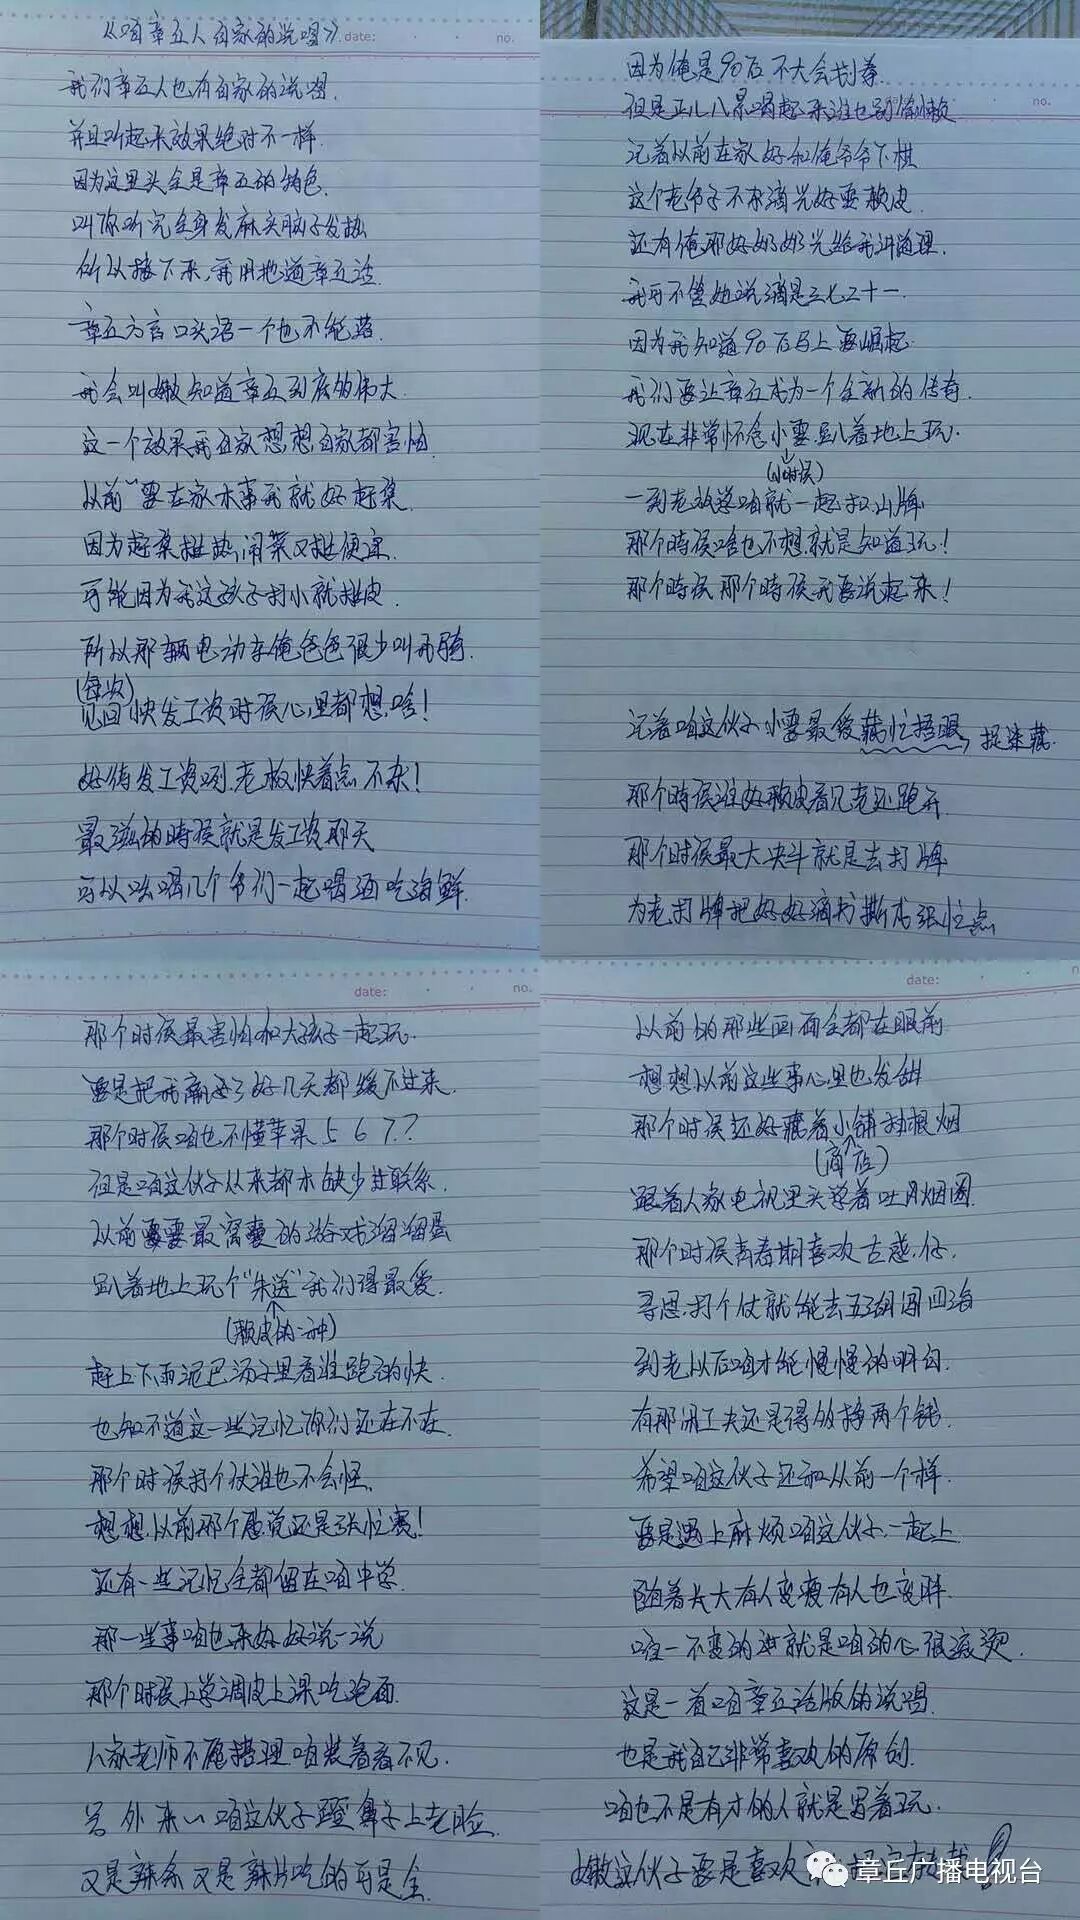 《咱章丘人自家的说唱》
date:
no.
我们章丘人也有自家的说唱.
并且听起来效果绝对不一样.
因为这里头全是章丘的特色.
叫你听完全身发麻头脑子发热
所以接下来,我用地道章丘话.
章丘方言口头语一个也不能落.
我会叫嫩知道章丘到底多伟大.
这一个效果我自家想想自家都害怕.
以前要在家木事我就好赶集.
因为赶集挺热闹菜又挺便宜.
可能因为我这孩子打小就挺皮.
所以那辆电动车俺爸爸很少叫我骑.
(每次)
见回快发工资时候心里都想,啥!
好待发工资咧.老板快着点不杂!
最滋的时候就是发工资那天
可以吆喝几个爷们一起喝酒吃海鲜.
因为俺是90后不大会划拳.
但是正儿八景喝起来谁也别偷懒
no.
记着以前在家好和俺爷爷下棋
这个老爷子不杂滴光好耍赖皮.
还有俺那好奶奶光给我讲道理.
我可不管她说滴是三七二十一.
因为我知道90后马上要崛起.
我们要让章丘成为一个全新的传奇.
现在非常怀念小霎趴着地上玩.
(小时候)
一到老放学咱就一起扣山牌.
那个时候啥也不想就是知道玩!
那个时候那个时候我要说起来!
记着咱这伙子小霎最爱藏忙捂眼,捉迷藏.
那个时候谁好赖皮看见老还跑开
那个时候最大决斗就是去打牌
为老打牌把好好滴书撕木张忙点
date:
no.
那个时候最害怕和大孩子一起玩.
要是把我 好几天都缓不过来.
那个时候咱也不懂苹果567?
但是咱这伙子从来都木缺少过联系.
以前 最窝囊的游戏溜溜蛋
趴着地上玩个“朱送”我们得最爱.
(赖皮的一种)
赶上下雨泥巴汤子里看谁跑的快.
也知不道这一些记忆你们还在不在.
那个时候打个仗谁也不会怪.
想想以前那个 说还是张忙赛!
还有一些记忆全都留在咱中学.
那一些事咱也来好好说一说
那个时候上学调皮上课吃泡面.
人家老师不愿搭理咱装着看不见.
另外来~咱这伙子蹬鼻子上老脸.
又是辣条又是辣片吃的可是全.
date:
以前的那些画面全都在眼前
想想以前这些事心里也发甜
那个时候还好藏着小铺抽根烟
(商店)
跟着人家电视里头学着吐月烟圈.
那个时候青春期喜欢古惑仔.
寻思打个仗就能去五湖闯四海
到老以后咱才能慢慢的明白.
有那闲工夫还是得多挣两个钱.
希望咱这伙子还和从前一个样.
要是遇上麻烦咱这伙子一起上.
随着长大有人变瘦有人也变胖.
唯一不变的 就是咱的心很滚烫.
这是一首咱章丘话版的说唱.
也是我自己非常喜欢的原创.
咱也不是有才的人就是写着玩.
嫩这伙子要是喜欢
章丘广播电视台